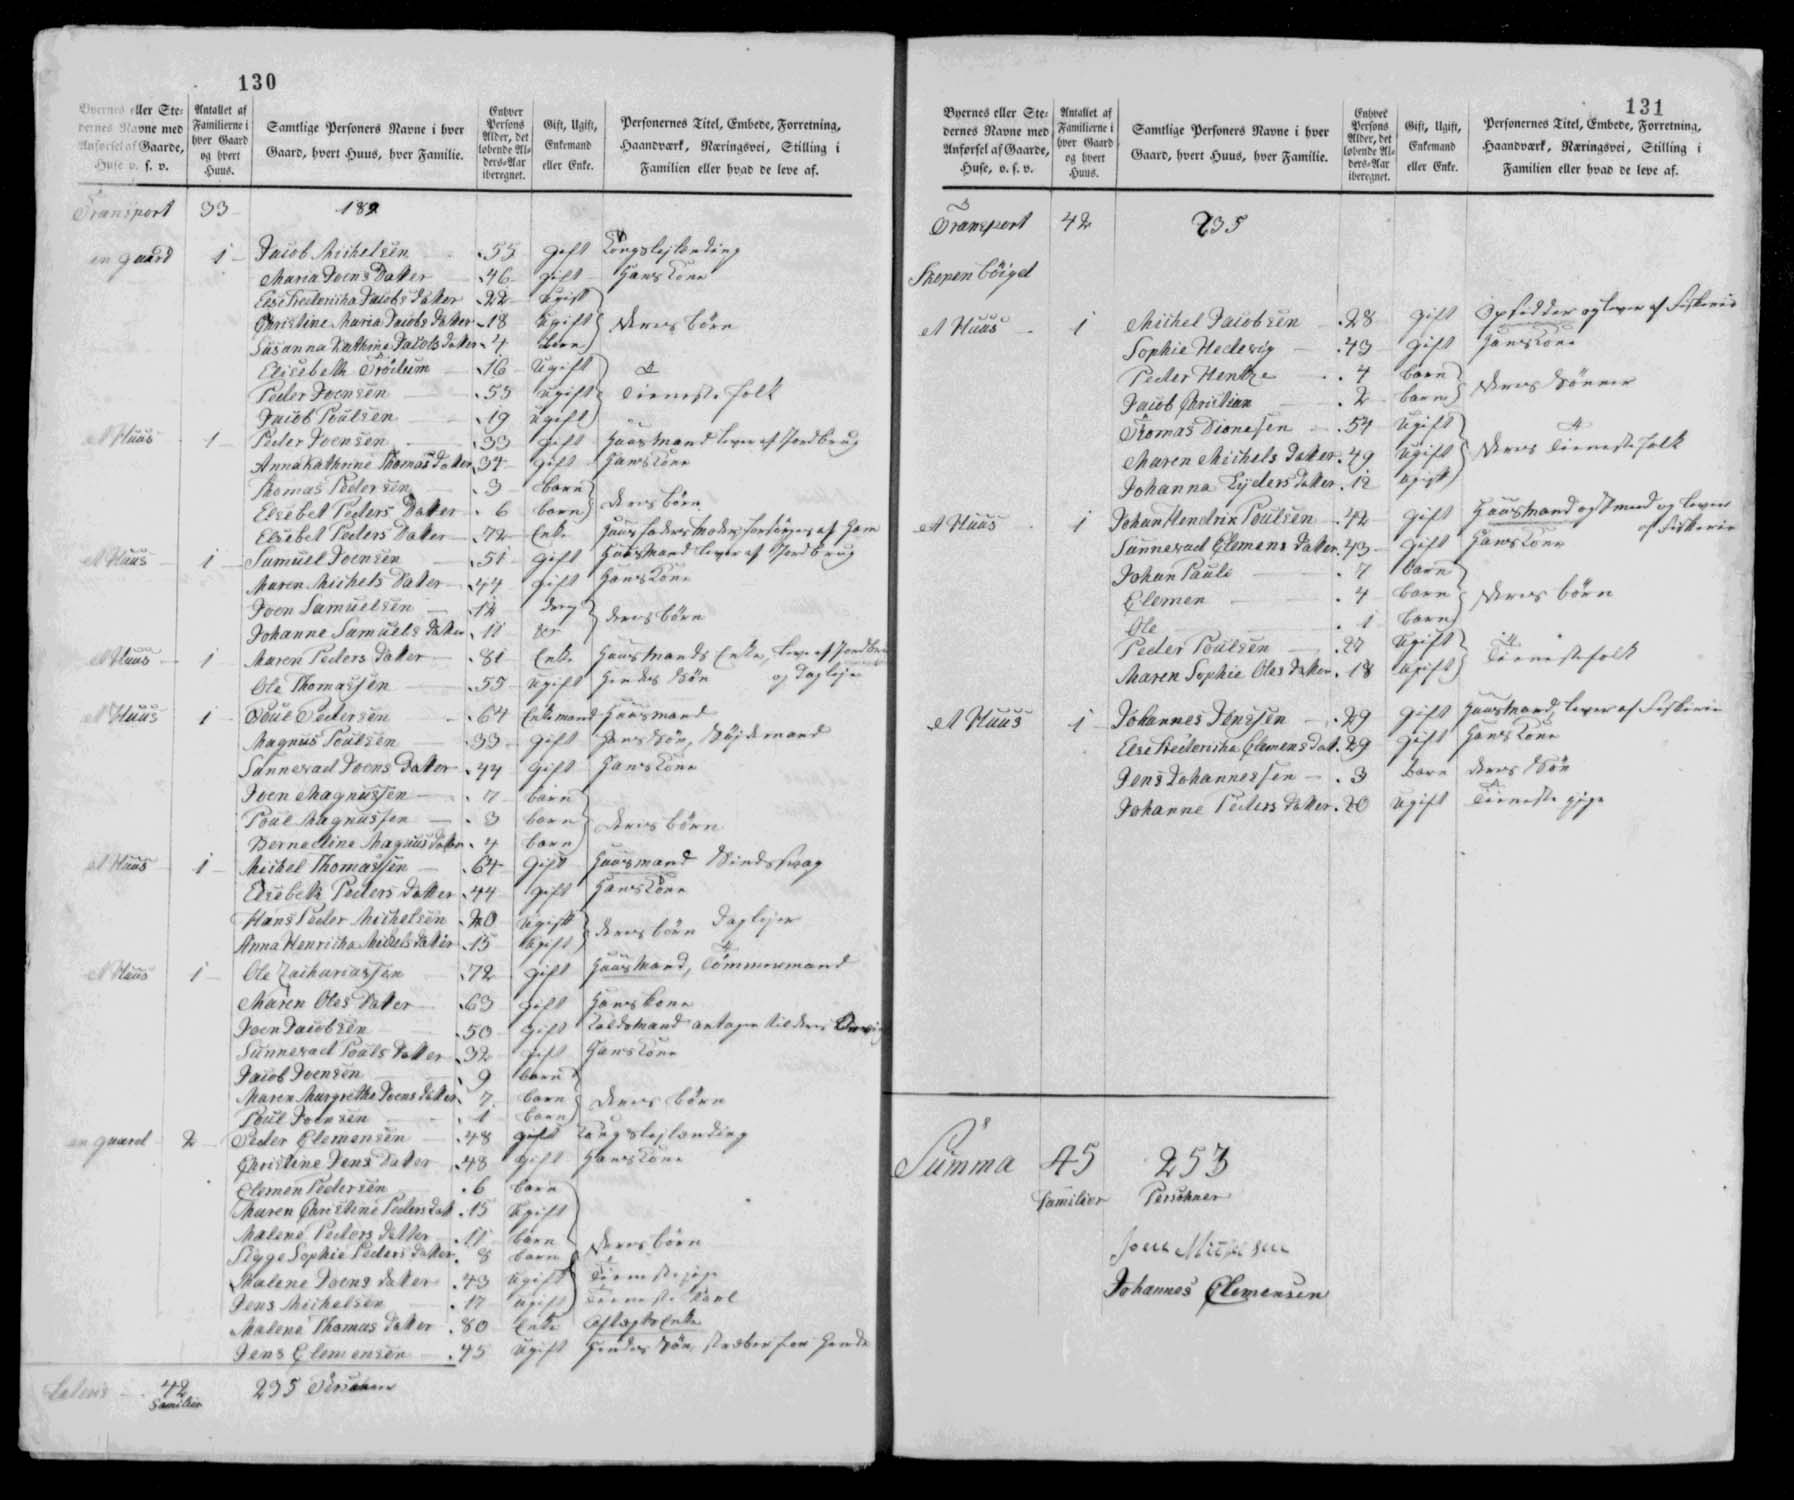 130
Byernes eller Stedernes Navne med Anførsel af Gaarde, Huse v. s. v.
Antallet af Familierne i hver Gaard og hvert Huus.
Samtlige Personers Navne i hver Gaard, hvert Huus, hver Familie.
Enhver Persons Alder, det løbende Alders-Aar iberegnet.
Gift, Ugift, Enkemand eller Enke.
Personernes Titel, Embede, Forretning, Haandværk, Næringsvei, Stilling i Familien eller hvad de leve af.
Transport 33 189
en gaard 1 Jacob Michelsen 55 gift Kongsleilending
Maria Joens Datter 46 gift Hans Kone
Else Fredericha Jacobs datter 22 Ugift
Christine Maria Jacobs datter 18 Ugift deres børn
Susanna Kathrine Jacobs datter 4 barn
Elisebeth Trödum 16 Ugift
Peder Joensen 53 ugift Tieneste folk
Jacob Poulsen 19 Ugift
et Huus 1 Peder Joensen 33 gift Huusmand lever af Jordbrug
Anna Kathrine Thomas Datter 34 gift Hans Kone
Thomas Pedersen 3 barn
Elsebet Peders Datter 6 barn deres børn
Elsebet Peders Datter 72 Enke Huusfaders Moder forsørges af Ham
et Huus 1 Samuel Joensen 51 gift Huusmand lever af Jordbrug
Maren Michels Datter 44 gift Hans Kone
Joen Samuelsen 14 dreng
Johanne Samuels datter 11 do deres børn
et Huus 1 Maren Peders datter 81 Enke Huusmands Enke, lever af Jordbru
Ole Thomassen 55 Ugift Hendes Søn og Dagleje
et Huus 1 Poul Pedersen 64 Enkemand Huusmand
Magnus Poulsen 33 gift Hans Søn,
Sunnevad Joens Datter 44 gift Hans Kone
Joen Magnussen 7 barn
Poul Magnussen 3 barn deres børn
Bernedine Magnusdatter 4 barn
et Huus 1 Michel Thomassen 64 gift Huusmand Sindssvag
Elsebeth Peders datter 44 gift Hans Kone
Hans Peder Michelsen 20 Ugift deres børn Daglejer
Anna Henricha Michelsdatter 15 Ugift
et Huus 1 Ole Zachariassen 72 gift Huusmand, Tømmermand
Maren Oles Datter 63 gift Hans kone
Joen Jacobsen 50 gift
Sunnevad Pouls datter 32 gift Hans Kone
Jacob Joensen 9 barn
Maren Margrethe Joens datter 7 barn deres børn
Poul Joensen 1 barn
en gaard 2 Peder Clemensen 48 gift Kongsleilending
Christine Jens Datter 48 gift Hans Kone
Clemen Pedersen 6 barn
Maren Christine Peders dat 15 Ugift
Malene Peders datter 11 barn deres børn
Sigge Sophie Peders datter 8 barn
Malene Joens datter 43 Ugift Tienestepige
Jens Michelsen 17 ugift Tieneste Karl
Malene Thomas datter 80 Enke Aftægts Enke
Jens Clemensen 45 Ugift Hendes Søn,
Lateris 42 Familier 235 Personer
131
Byernes eller Stedernes Navne med Anførsel af Gaarde, Huse, v. s. v.
Antallet af Familierne i hver Gaard og hvert Huus.
Samtlige Personers Navne i hver Gaard, hvert Huus, hver Familie.
Enhver Persons Alder, det løbende Alders-Aar iberegnet.
Gift, Ugift, Enkemand eller Enke.
Personernes Titel, Embede, Forretning, Haandværk, Næringsvei, Stilling i Familien eller hvad de leve af.
Transport 42 235
et Huus 1 Michel Jacobsen 28 gift Opsidder og lever af Fiskerie
Sophie Hedevig 43 gift Hans Kone
Peder Hentze 4 barn
Jacob Christian 2 barn deres Sønner
Tomas Dionesen 54 Ugift
Maren Michels datter 49 Ugift deres Tienestefolk
Johanna Eyders datter 12 Ugift
et Huus 1 Johan Hendrik Poulsen 42 gift Huusmand og lever af Fiskerie
Sunnevad Clemens datter 43 gift Hans Kone
Johan Pauli 7 barn
Clemen 4 barn deres børn
Ole 1 barn
Peder Poulsen 27 Ugift Tienestefolk
Maren Sophie Oles datter 18 Ugift
et Huus 1 Johannes Jenssen 29 gift Huusmand, lever af Fiskerie
Else Fredericha Clemens dat 29 gift Hans Kone
Jens Johannessen 3 barn deres Søn
Johanne Peders datter 20 Ugift Tieneste pige
Summa 45 253
Familier Personer
Johannes Clemensen